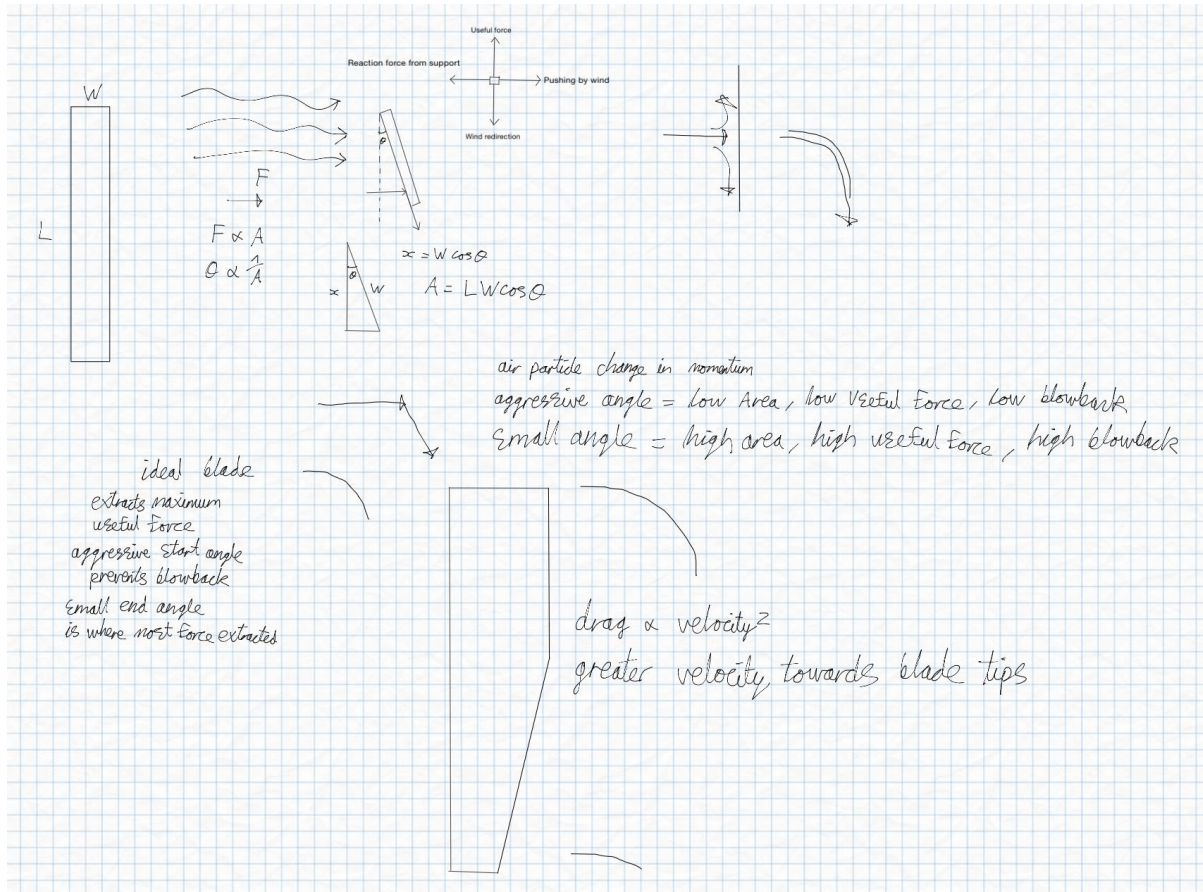 Useful force
Reaction force from support
Pushing by wind
Wind redirection
W
L
θ
F
F ∝ A
θ ∝ 1/A
x = W cos θ
A = L W cos θ
θ
x
W
air particle change in momentum
aggressive angle = low Area, low Useful force, low blowback
small angle = high area, high useful force, high blowback
ideal blade
extracts maximum
useful force
aggressive start angle
prevents blowback
small end angle
is where most force extracted
drag ∝ velocity²
greater velocity, towards blade tips